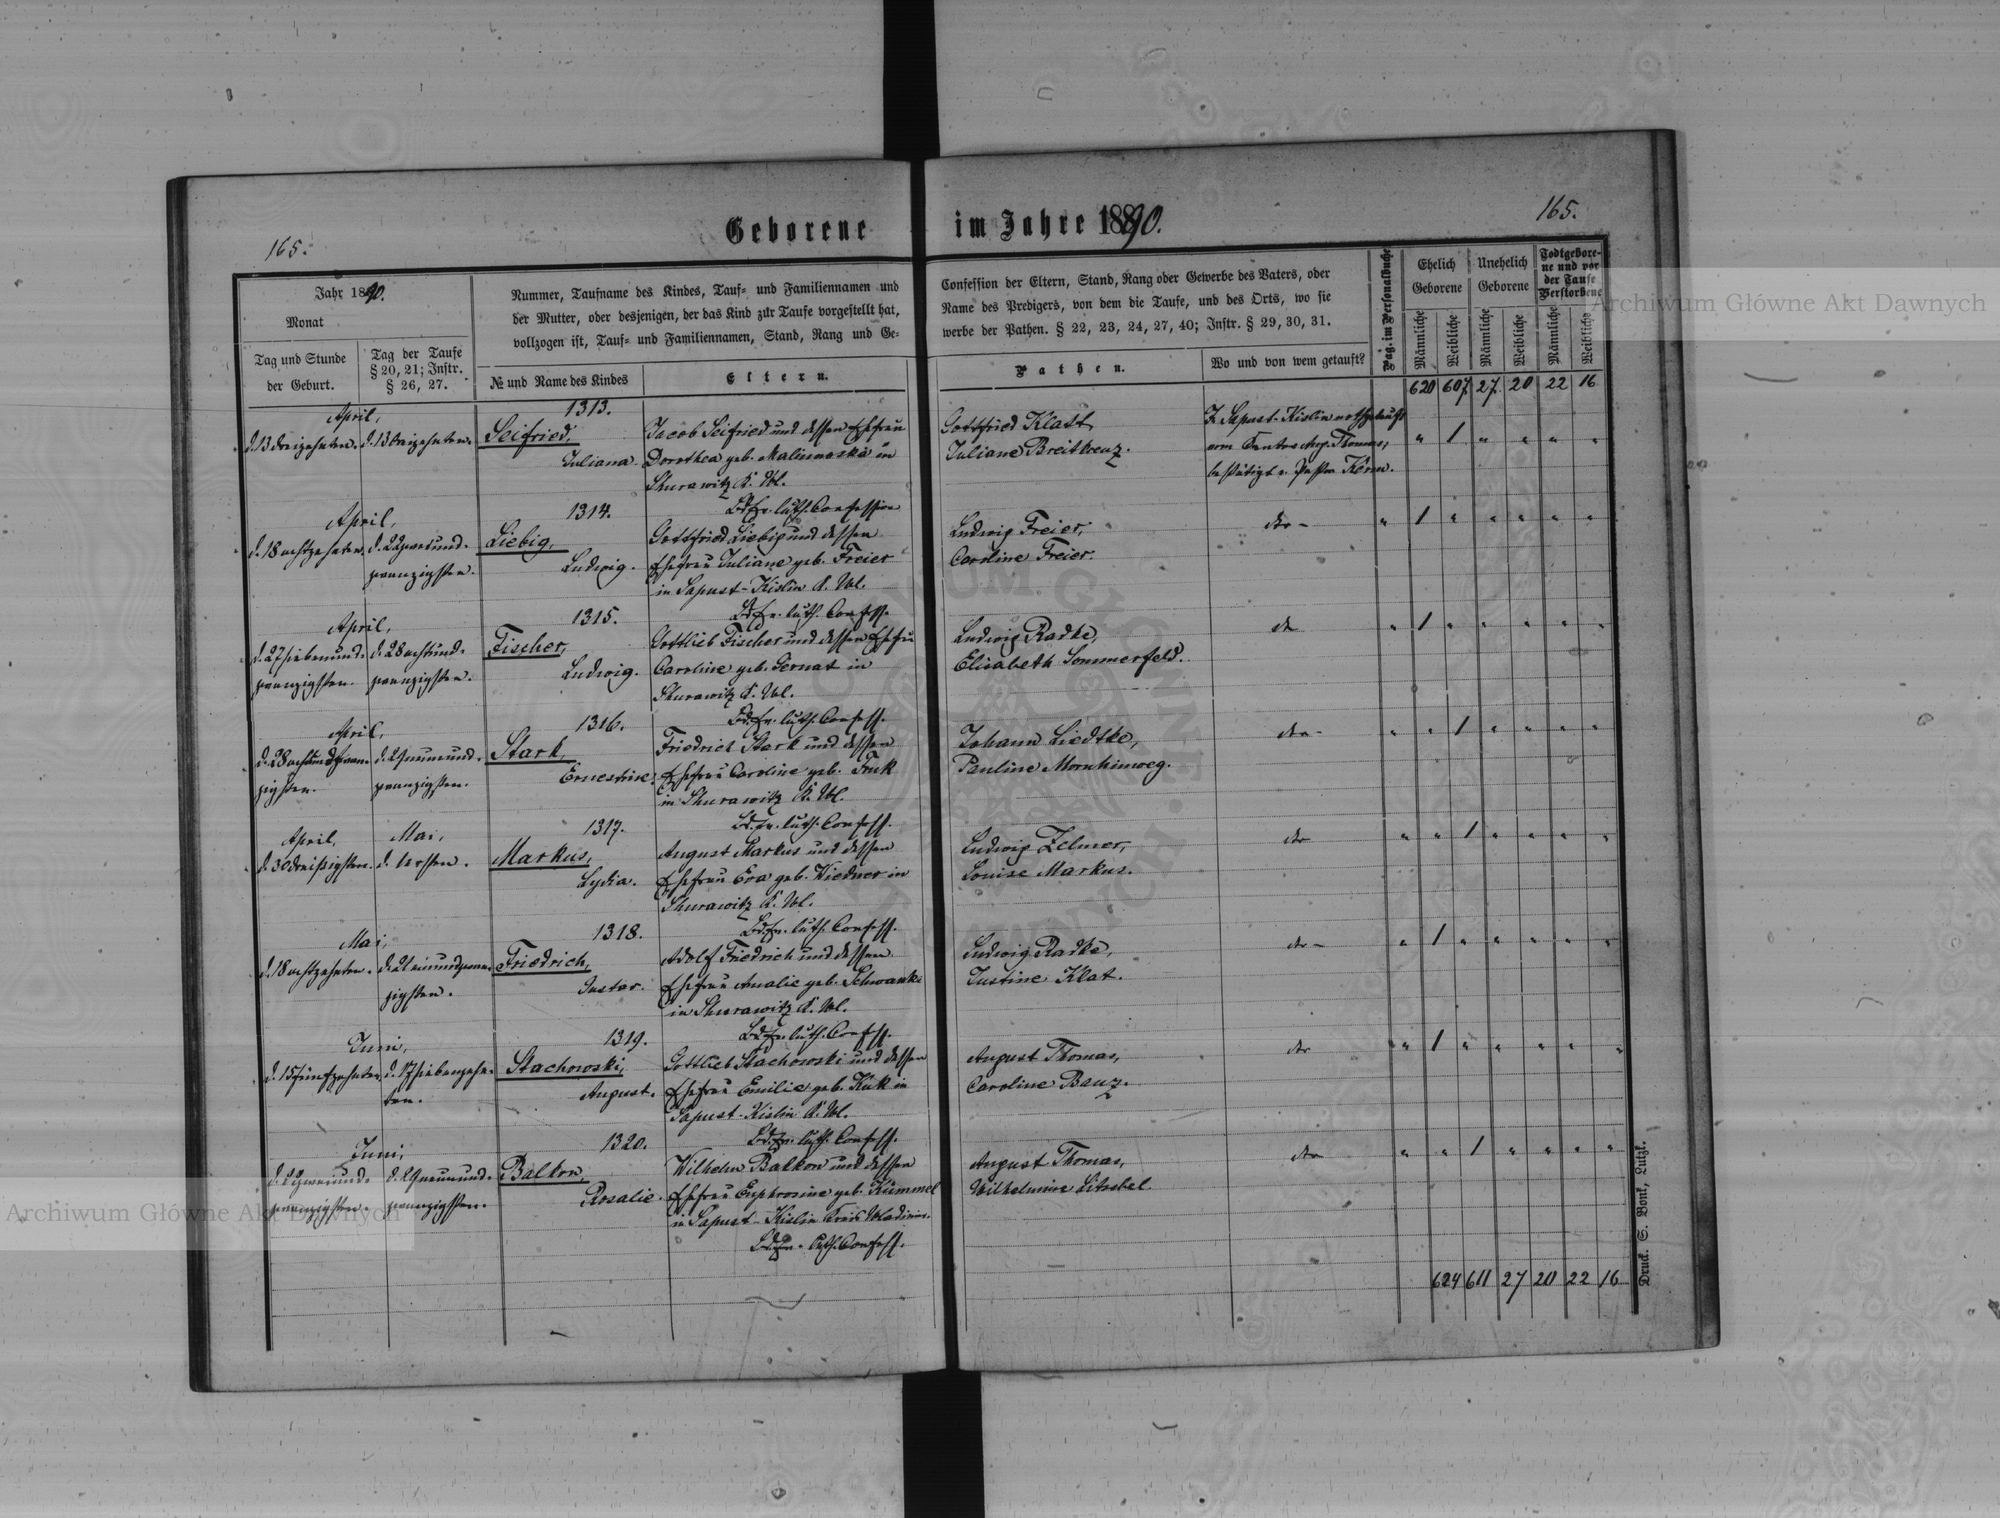 165.
Geborene im Jahre 1890.
165.
Jahr 1890.
Monat
Tag und Stunde
der Geburt.
Tag der Taufe
§ 20, 21; Instr.
§ 26, 27.
Nummer, Taufname des Kindes, Tauf- und Familiennamen und
der Mutter, oder desjenigen, der das Kind zur Taufe vorgestellt hat,
vollzogen ist, Tauf- und Familiennamen, Stand, Rang und Ge-
№ und Name des Kindes
Eltern.
Confession der Eltern, Stand, Rang oder Gewerbe des Vaters, oder
Name des Predigers, von dem die Taufe, und des Orts, wo sie
werbe der Pathen. § 22, 23, 24, 27, 40; Instr. § 29, 30, 31.
Pathen.
Wo und von wem getauft?
Pag. im Personalbuche
Ehelich
Geborene
Unehelich
Geborene
Todtgebore-
ne und vor
der Taufe
Verstorbene
Männliche
Weibliche
Männliche
Weibliche
Männliche
Weibliche
620 607 27 20 22 16
April,
d. 13 dreizehnten. d. 13 dreizehnten.
1313.
Seifried,
Juliana.
Jacob Seifried und dessen Ehefrau
Dorothea geb. Malinowska in
Shurawitz K. Wl.
Bd. Ev. luth. Confession
Gottfried Klatt,
Juliane Breitkreuz.
Z. Sapust-Kislin nothgetauft
vom Cantor Aug. Thomas,
bestätigt v. Pastor Kern.
" 1 " " " "
April,
d. 18 achtzehnten. d. 22 zweiund-
zwanzigsten.
1314.
Liebig,
Ludwig.
Gottfried Liebig und dessen
Ehefrau Juliane geb. Freier
in Sapust-Kislin K. Wl.
Bd. Ev. luth. Confess.
Ludwig Freier,
Caroline Freier.
dto -
" 1 " " " " "
April,
d. 27 siebenund- d. 28 achtund-
zwanzigsten. zwanzigsten.
1315.
Fischer,
Ludwig.
Gottlieb Fischer und dessen Ehefrau
Caroline geb. Sernat in
Shurawitz K. Wl.
Bd. Ev. luth. Confess.
Ludwig Radke,
Elisabeth Sommerfeld.
dto
" 1 " " " " "
April,
d. 28 achtundzwan- d. 29 neunund-
zigsten. zwanzigsten.
1316.
Stark,
Ernestine.
Friedrich Stark und dessen
Ehefrau Caroline geb.
in Shurawitz K. Wl.
Bd. Ev. luth. Confess.
Johann Liedtke,
Pauline Mornhinweg.
dto -
" " 1 " " " "
April, Mai,
d. 30 dreißigsten. d. 1 ersten.
1317.
Markus,
Lydia.
August Markus und dessen
Ehefrau Eva geb. Wiedner in
Shurawitz K. Wl.
Bd. Ev. luth. Confess.
Ludwig Zelmer,
Louise Markus.
dto
" " 1 " " " "
Mai,
d. 18 achtzehnten. d. 21 einundzwan-
zigsten.
1318.
Friedrich,
Gustav.
Adolf Friedrich und dessen
Ehefrau Amalie geb. Schwanke
in Shurawitz K. Wl.
Bd. Ev. luth. Confess.
Ludwig Radke,
Justine Klat.
dto -
" 1 " " " " "
Juni,
d. 15 fünfzehnten. d. 17 siebenzehn-
ten.
1319.
Stachowski,
August.
Gottlieb Stachowski und dessen
Ehefrau Emilie geb. Kük in
Sapust-Kislin K. Wl.
Bd. Ev. luth. Confess.
August Thomas,
Caroline Banz.
dto
" 1 " " " " "
Juni,
d. 22 zweiund- d. 29 neunund-
zwanzigsten. zwanzigsten.
1320.
Balkon,
Rosalie.
Wilhelm Balkon und dessen
Ehefrau Euphrosine geb. Kümmel
in Sapust-Kislin Kreis Wladimir.
Bd. Ev. luth. Confess.
August Thomas,
Wilhelmine
dto
" " 1 " " " "
624 611 27 20 22 16
Druck. S. Bonk, Lutzk.
Archiwum Główne Akt Dawnych
Archiwum Główne Akt Dawnych